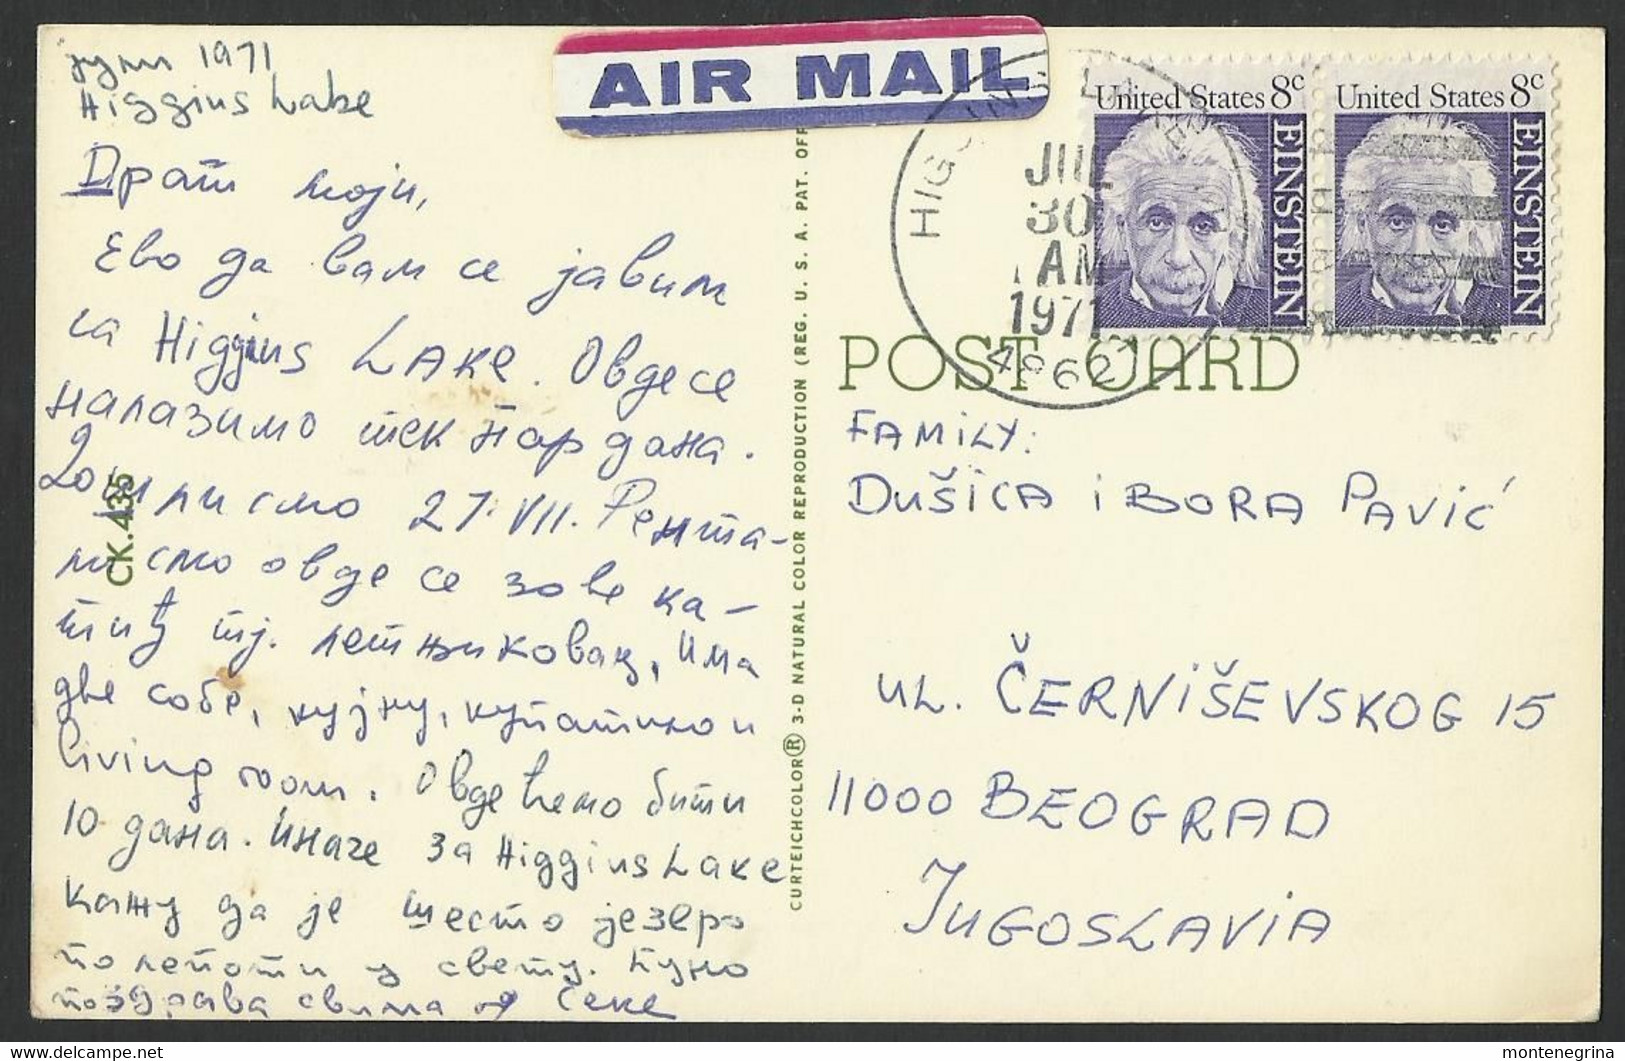 јули 1971
Higgins Lake
Драги моји,
Ево да вам се јавим
са Higgins LAKE. Овде се
налазимо тек пар дана.
Дошли смо 27. VII. Рента-
ли смо овде се зове ка-
тиџ тј. летњиковац, има
две собе, кујну, купатило и
living room. Овде ћемо бити
10 дана. Иначе за Higgins Lake
кажу да је шесто језеро
по лепоти у свету. Пуно
поздрава свима од Секе
AIR MAIL
United States 8c
EINSTEIN
United States 8c
EINSTEIN
JUL
30
AM
1971
POST CARD
FAMILY:
DUŠICA I BORA PAVIĆ
UL. ČERNIŠEVSKOG 15
11000 BEOGRAD
JUGOSLAVIA
CK.435
CURTEICHCOLOR® 3-D NATURAL COLOR REPRODUCTION (REG. U. S. A. PAT. OFF
montenegrina